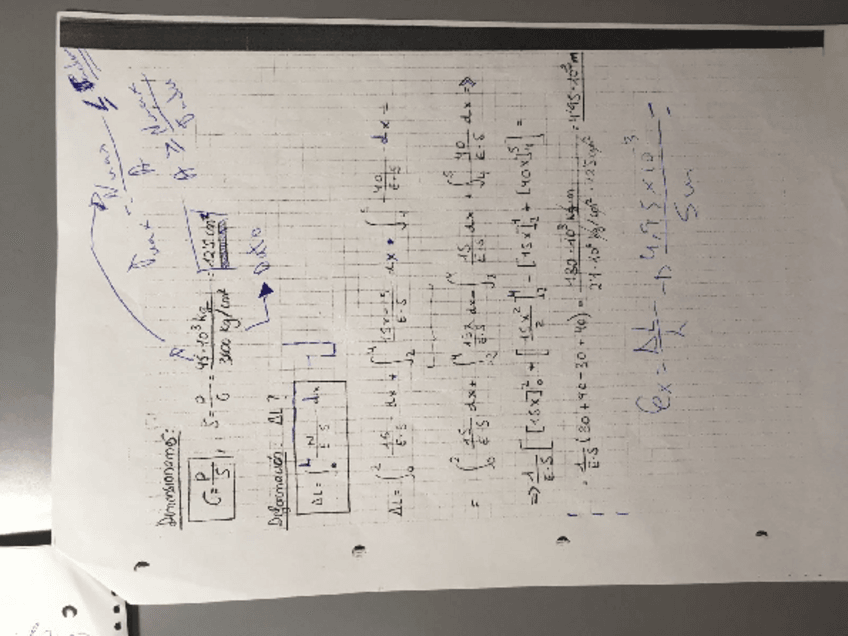 Dimensionamos:
σ = P/S ; S = P/σ = 45·10³ kg / 3600 kg/cm² = 12,5 cm²
Dato
σmax = Nmax
Deformación: ΔL?
ΔL = ∫₀ᴸ N/E·S dx
ΔL = ∫₀² 15/E·S dx + ∫₂⁴ 15x-15/E·S dx + ∫₄⁵ 40/E·S dx =
= ∫₀² 15/E·S dx + ∫₂⁴ 15x/E·S dx - ∫₂⁴ 15/E·S dx + ∫₄⁵ 40/E·S dx =>
=> 1/E·S [[15x]₀² + [15x²/2]₂⁴ - [15x]₂⁴ + [40x]₄⁵] =
= 1/E·S (30+90-30+40) = 130·10³ kg·m / 2'1·10⁶ kg/cm² · 12,5 cm² = 4'95·10⁻³ m
εx = ΔL/L → 4,95x10⁻³ / 5m